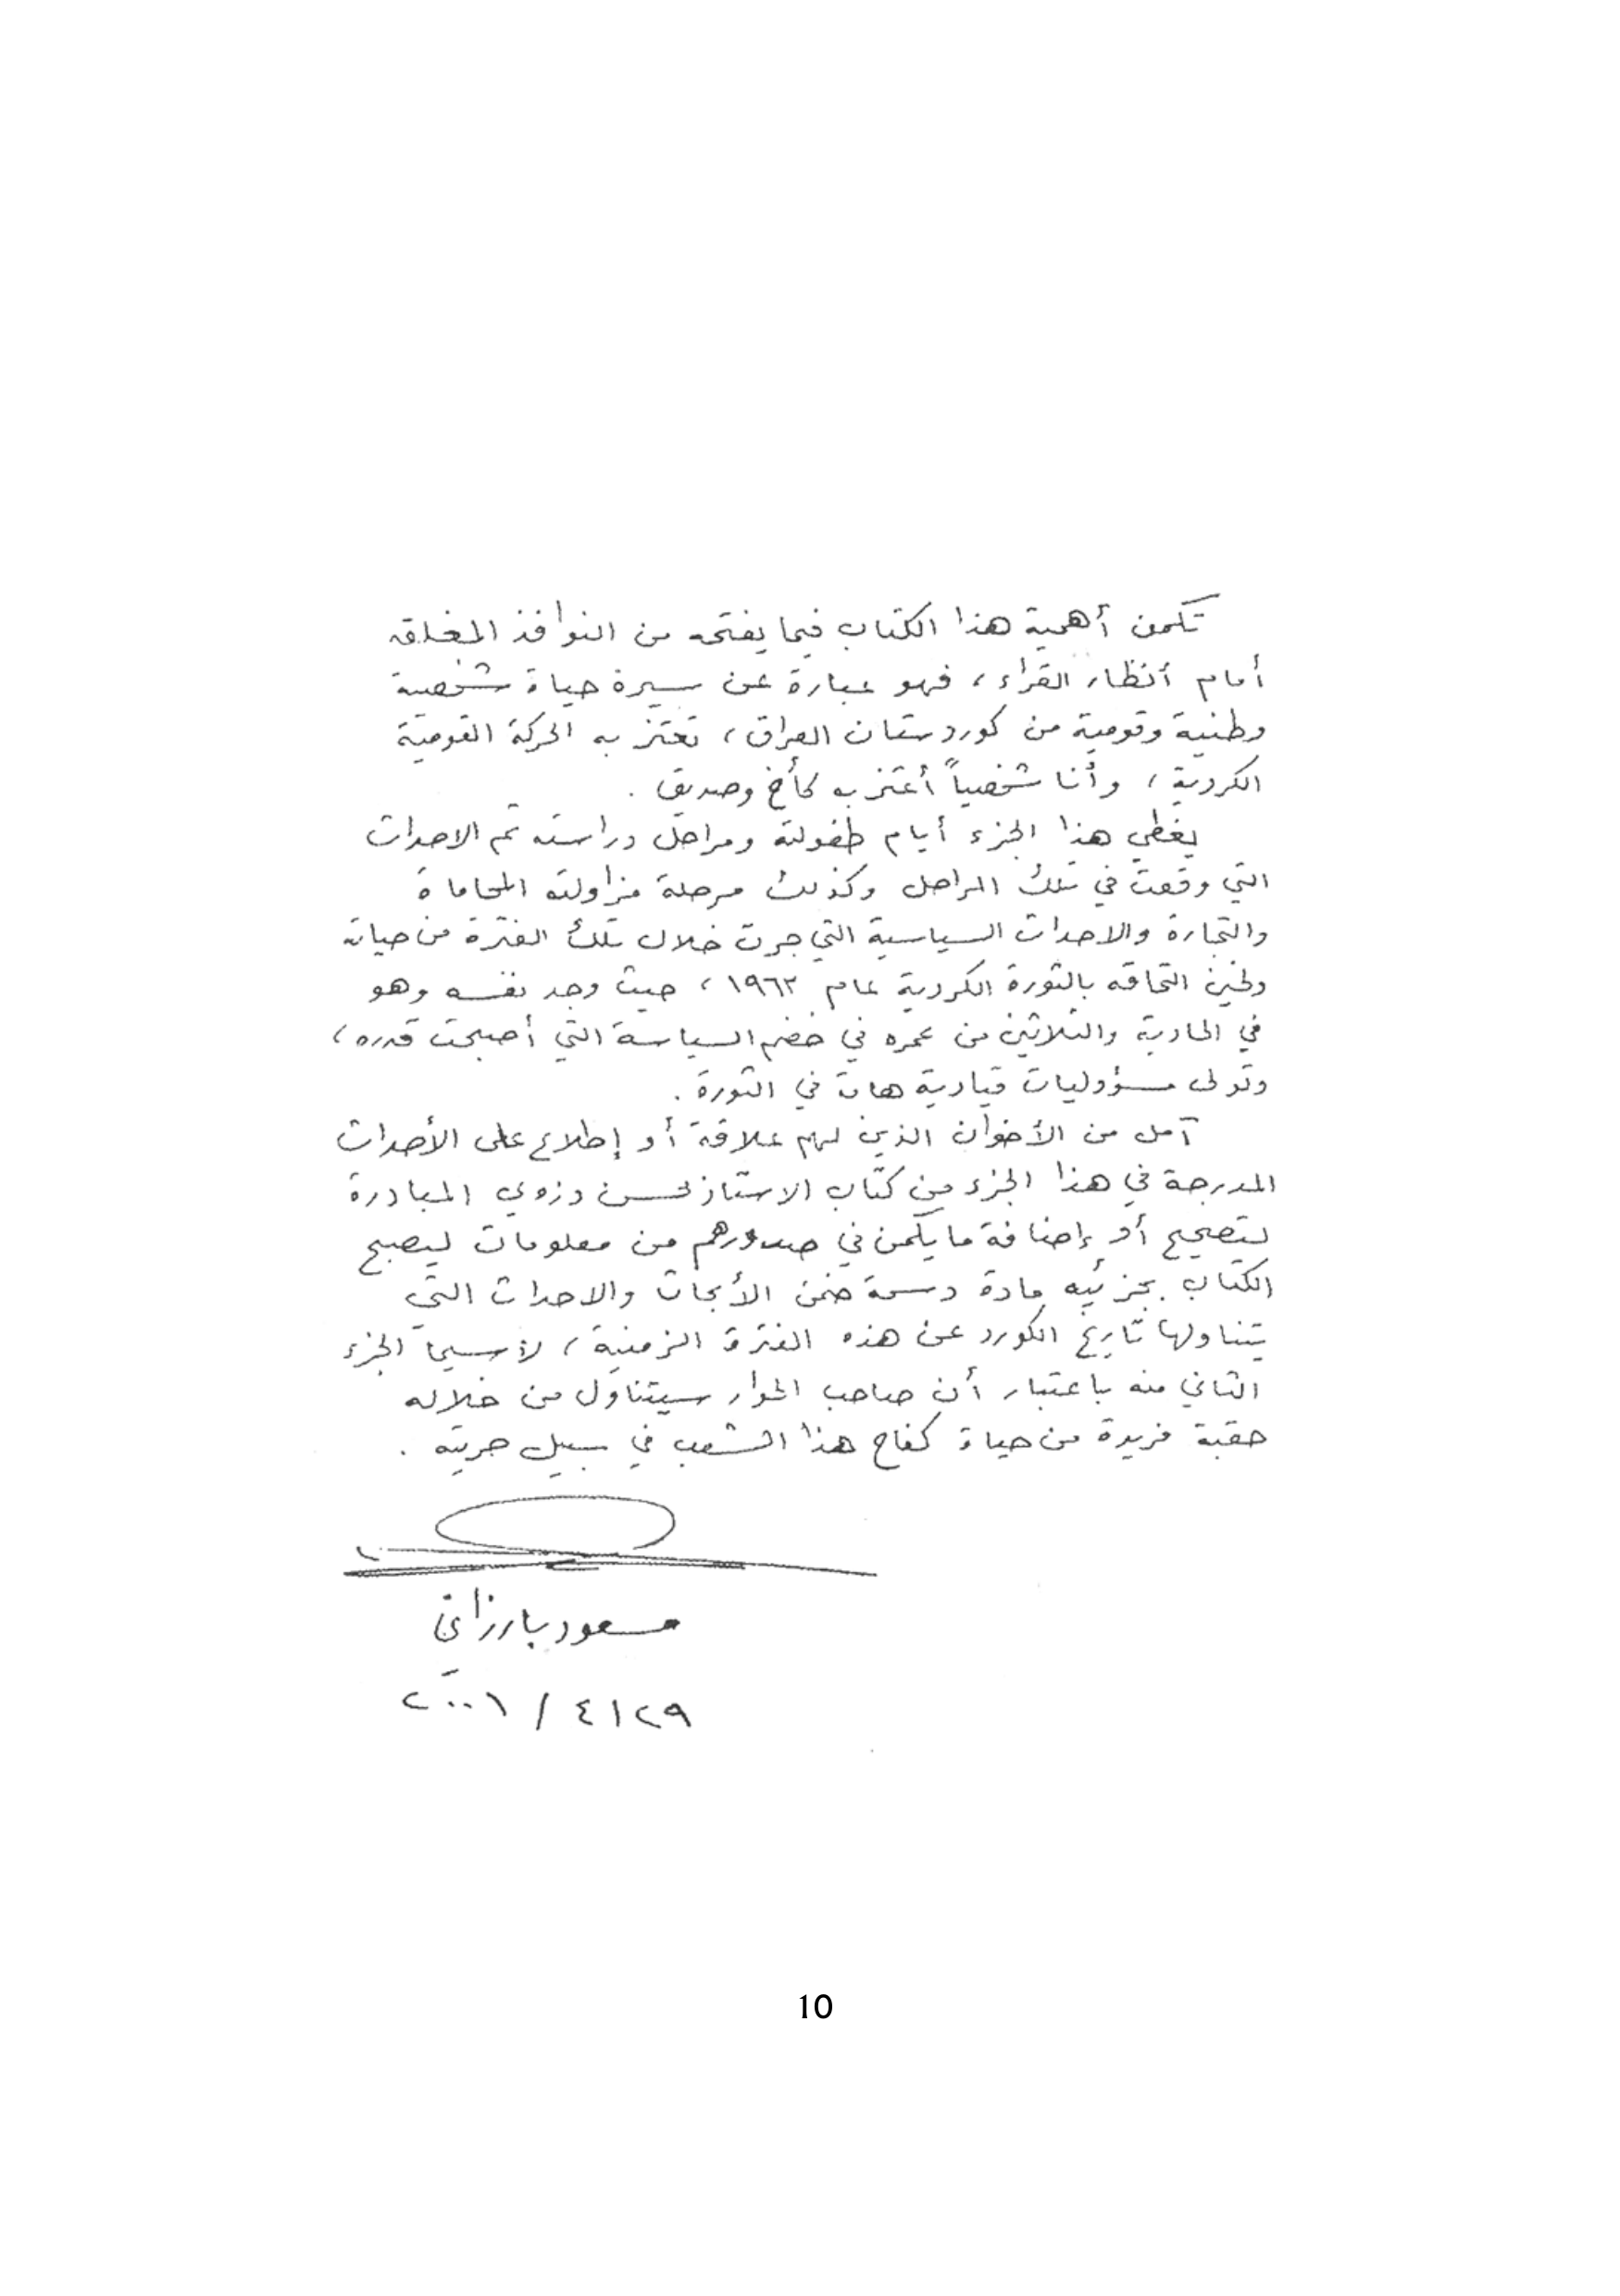 تكمن أهمية هذا الكتاب فيما يفتحه من النوافذ المغلقه
أمام أنظار القراء، فهو عبارة عن سيرة حياة شخصية
وطنية وقومية من كوردستان العراق، تعتز به الحركة القومية
الكردية، وأنا شخصياً أعتز به كأخ وصديق.
يغطي هذا الجزء أيام طفولته ومراحل دراسته ثم الاحداث
التي وقعت في تلك المراحل وكذلك مرحلة مزاولته المحاماة
والتجارة والاحداث السياسية التي جرت خلال تلك الفترة من حياته
ولحين التحاقه بالثورة الكردية عام ١٩٦٣، حيث وجد نفسه وهو
في الحادية والثلاثين من عمره في خضم السياسة التي أصبحت قدره،
وتولى مسؤوليات قيادية هامة في الثورة.
آمل من الأخوان الذين لهم علاقة أو إطلاع على الأحداث
المدرجة في هذا الجزء من كتاب الاستاذ محسن دزه‌يى المبادرة
لتصحيح أو إضافة ما يكمن في صدورهم من معلومات ليصبح
الكتاب بجزئيه مادة دسمة ضمن الأبحاث والاحداث التي
يتناولها تاريخ الكورد عن هذه الفترة الزمنية، لاسيما الجزء
الثاني منه باعتبار أن صاحب الحوار سيتناول من خلاله
حقبة فريدة من حياة كفاح هذا الشعب في سبيل حريته.
مسعود بارزاني
٢٩/٤/٢٠٠١
10